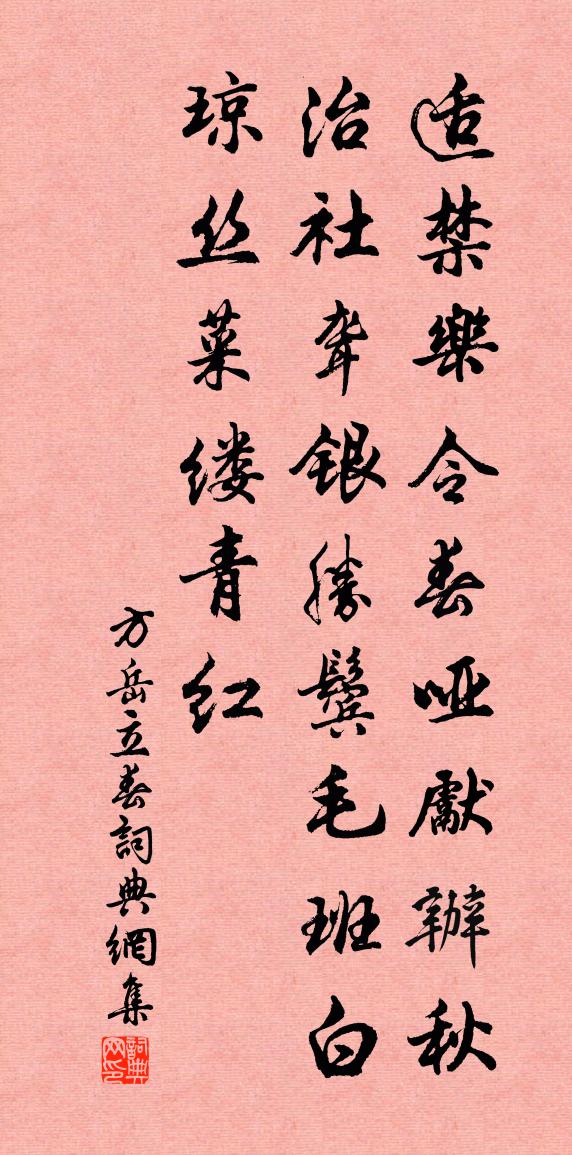 适禁樂令春哑獻辦秋
治社聋銀勝鬓毛班白
琼丝菜缕青红
方岳立春詞典網集
詞典网印